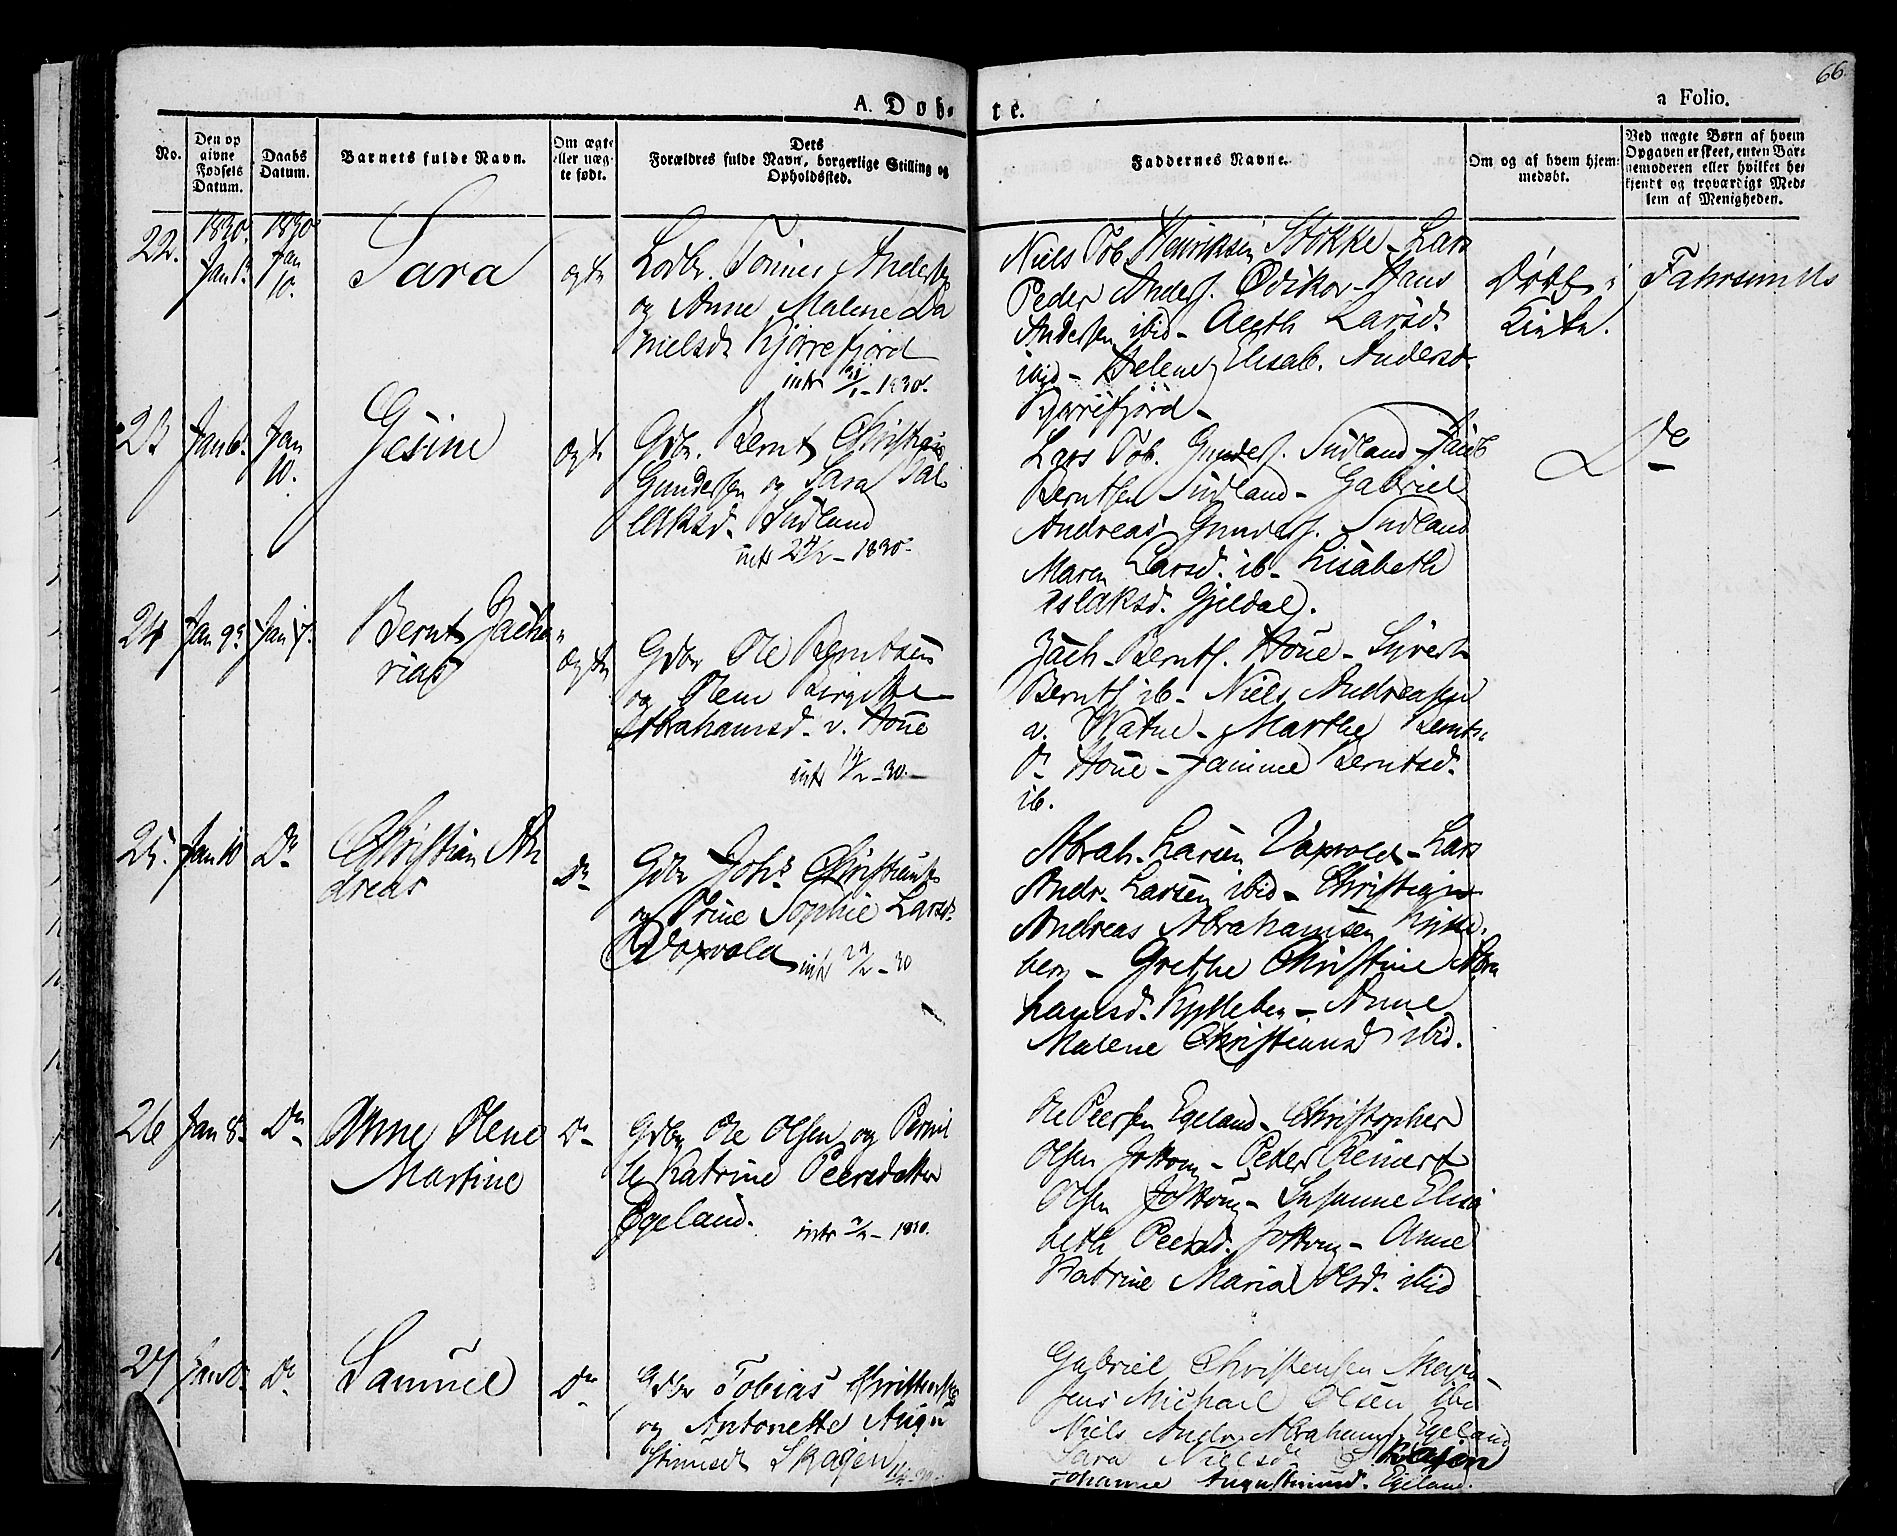 66
A. Døb-
te.
a Folio.
No.
Den op
givne
Fødsels
Datum.
Daabs
Datum.
Barnets fulde Navn.
Om ægte
eller uæg-
te født.
Dets
Forældres fulde Navn, borgerlige Stilling og
Opholdssted.
Faddernes Navne.
Om og af hvem hjem-
medøbt.
Ved uægte Børn af hvem
Opgaven er skeet, enten Bar-
nemoderen eller hvilket be-
kjendt og troværdigt Med-
lem af Menigheden.
22.
1830.
1830
Jan
10.
Sara
ægte
Tønnes Anders
og Anne Malene Da
nielsd. Kjørrefjord
intr 1830.
Niels Tob. Henriksen Stokke - Lars
Peder Anders. Ødskov - Hans
Andersen ibid - Aseth Larsd.
ibid - Helene Elisab. Andersd
Kjørrefjord -
Døbt i Fahrsunds
Kirke.
23
Jan 6.
Jan
10.
Gesine
ægte
Gdbr. Bernt Christian
Gundersen og Sara Sal
Sudland
intr 24/2 - 1830.
Lars Tob. Gunders. Sudland - Jacob
Berntsen Sudland - Gabriel
Andreas Gunders. Sudland
Maren Larsd. ib - Lisabeth
Aslaksd. Gjeldal.
Do
24
Jan 9.
Jan 17.
Bernt Zacha-
rias
ægte
Gdbr Ole Berntsen
og Olene Birgitte
Abrahamsd. v. Houe
intr 14/2 - 30. -
Zach - Bernts. Houe - Syvert
Bernts ib - Niels Andreassen
v. Watne - Marthe Bernts
d. Houe - Jamine Berntsd.
ib.
25.
Jan 10
Do
Christian An
dreas
Do
Gdbr Johs Christians.
og Trine Sophie Larsd.
Voxvold intr 24/2 - 30
Abrah. Larsen Voxvold - Lars
Andr. Larsen ibid - Christian
Andreas Abrahamsen
Grethe Christine Abra
hamsd. - Anne
Malene Christiansd ibid.
26
Jan 8.
Do
Anne Olene
Martine
Do
Gdbr Ole Olsen og Pernil
le Katrine Peersdatter
Egeland. intr 1830.
Ole Peersen Egeland - Christopher
Olsen Jottom - Peder Reinert
Olsen Jottom - Susanne Elisa
beth Peersd. Jottom - Anne
Katrine Maria Olsd. ibid
27
Do
Samuel
Do
Gdbr Tobias Christensen
og Antonette Augu
stinusd Skagen
Gabriel Christensen
Jens Michael Olsen ibid
Niels Andr. Abrahams. Egeland
Sara Nielsd. Skagen
Johanne Augustinusd. Egeland.